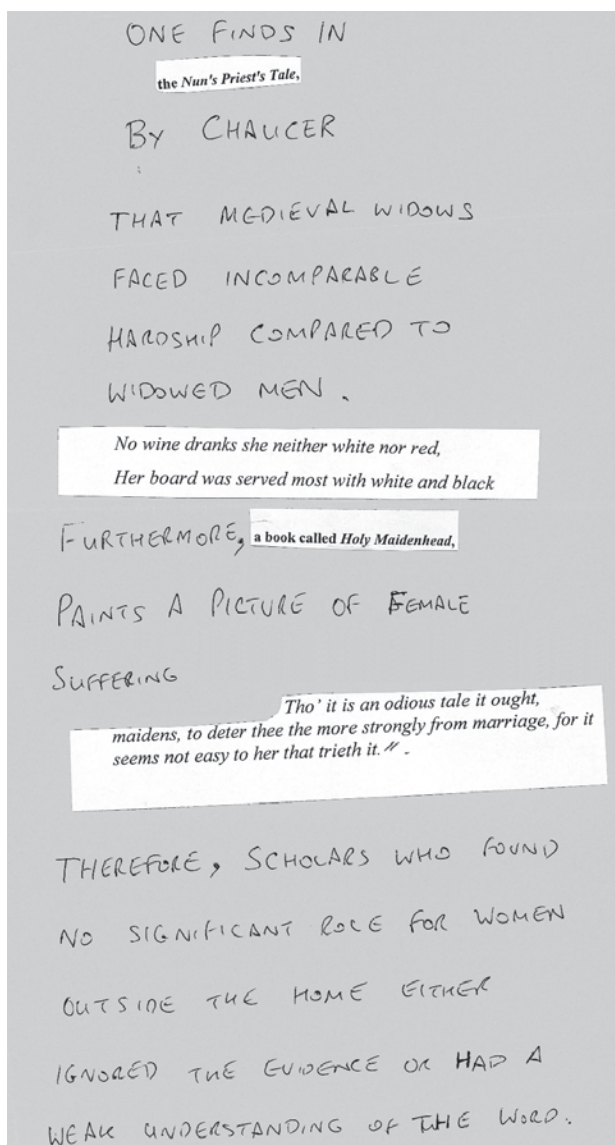 ONE FINDS IN
the Nun's Priest's Tale,
BY CHAUCER
THAT MEDIEVAL WIDOWS
FACED INCOMPARABLE
HARDSHIP COMPARED TO
WIDOWED MEN.
No wine dranks she neither white nor red,
Her board was served most with white and black
FURTHERMORE, a book called Holy Maidenhead,
PAINTS A PICTURE OF FEMALE
SUFFERING
Tho' it is an odious tale it ought,
maidens, to deter thee the more strongly from marriage, for it
seems not easy to her that trieth it." .
THEREFORE, SCHOLARS WHO FOUND
NO SIGNIFICANT ROLE FOR WOMEN
OUTSIDE THE HOME EITHER
IGNORED THE EVIDENCE OR HAD A
WEAK UNDERSTANDING OF THE WORD.